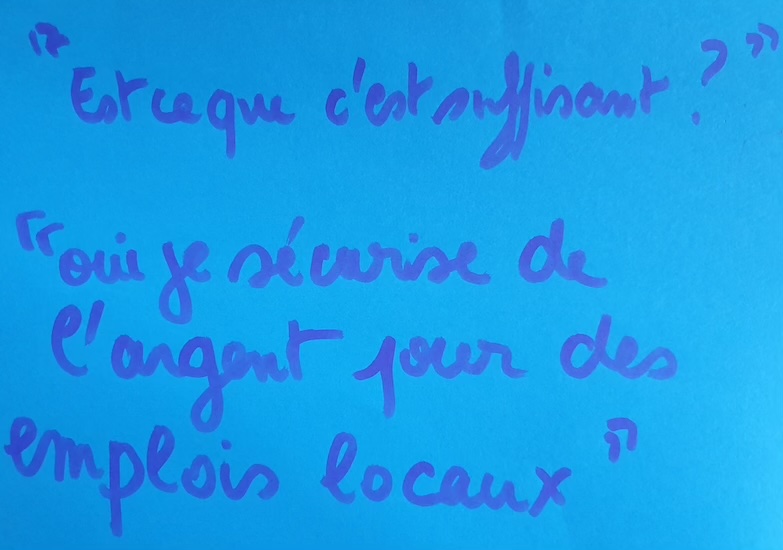 "Est ce que c'est suffisant ?"
"oui je sécurise de
l'argent pour des
emplois locaux"